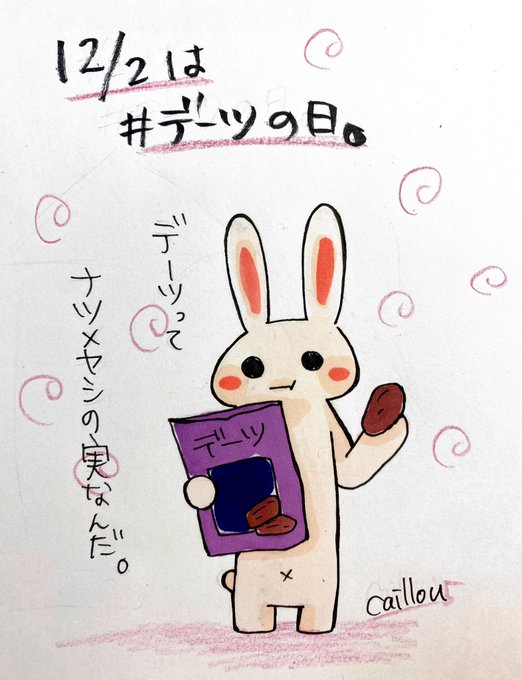 12/2は
#デーツの日。
デーツって
ナツメヤシの実なんだ。
デーツ
caillou